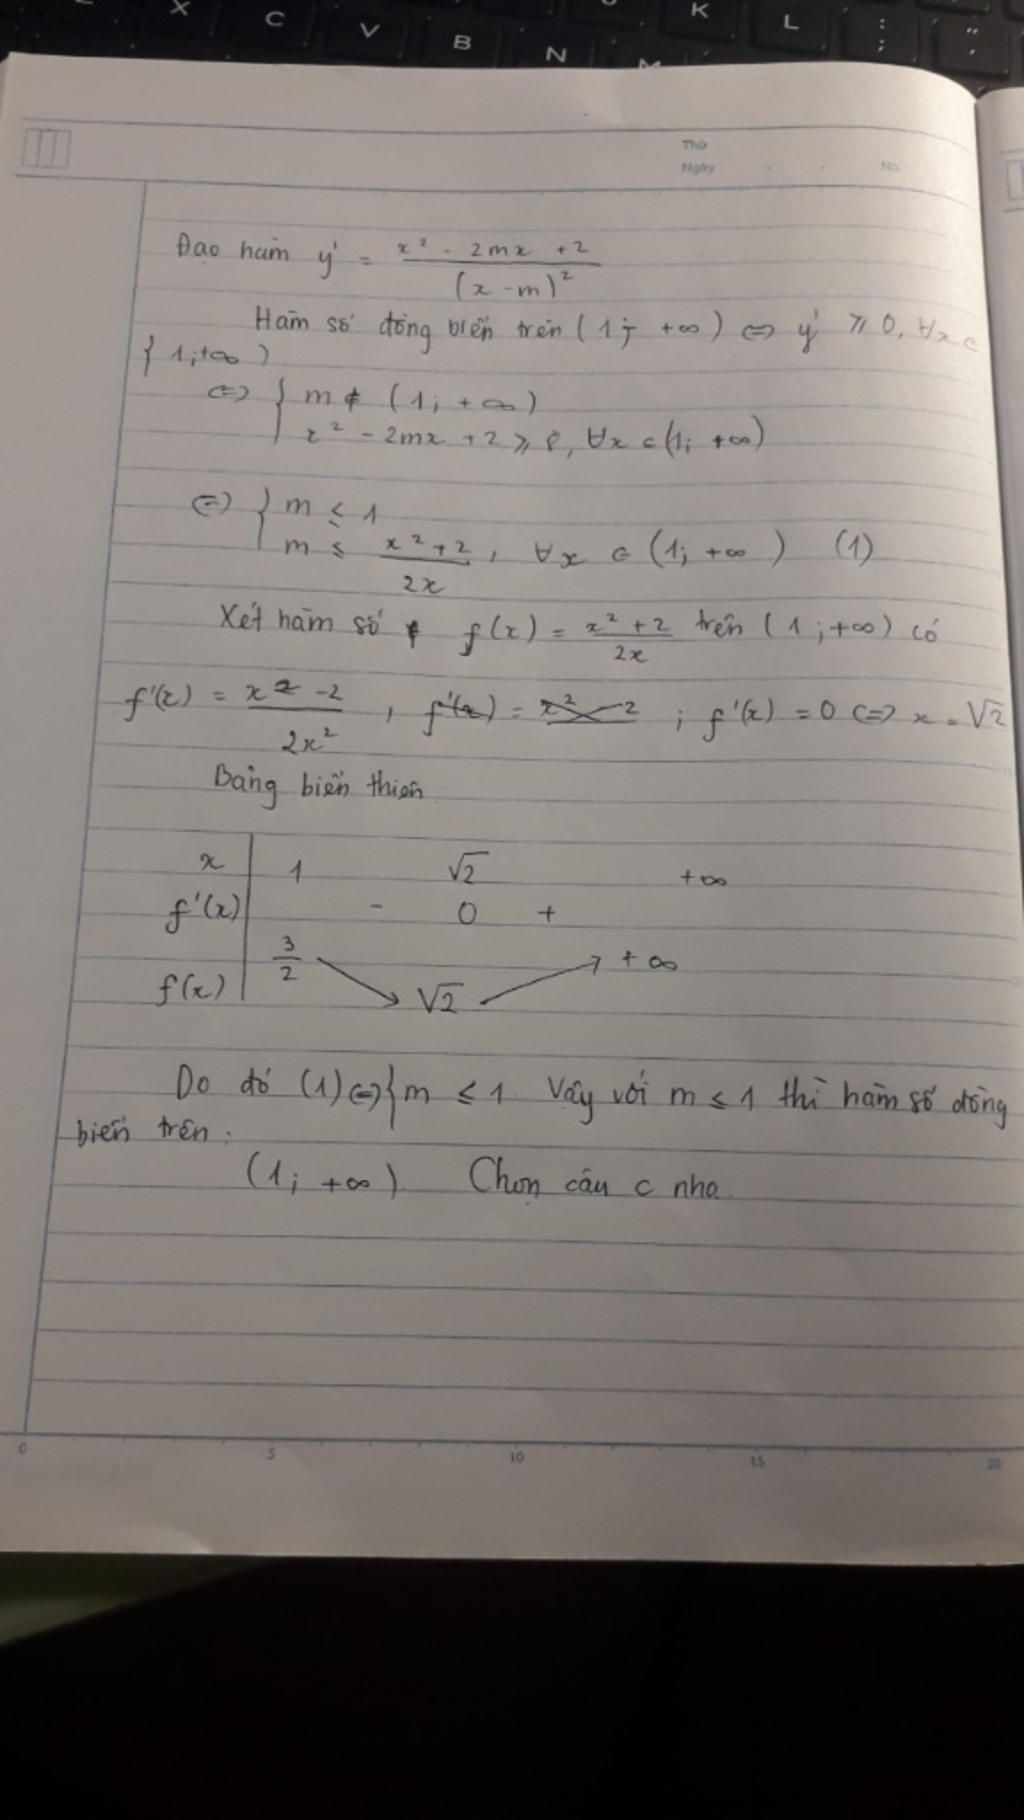 X C V B N M K L : "
Thứ
Ngày No.
Đạo hàm y' = \frac{x² - 2mx + 2}{(x - m)²}
Hàm số đồng biến trên (1; +∞) ⇔ y' ⩾ 0, ∀x ∈
{ 1; +∞ )
⇔ { m ∉ (1; +∞)
x² - 2mx + 2 ⩾ 0, ∀x ∈ (1; +∞)
⇔ { m ≤ 1
m ≤ \frac{x² + 2}{2x}, ∀x ∈ (1; +∞) (1)
Xét hàm số f(x) = \frac{x² + 2}{2x} trên (1; +∞) có
f'(x) = \frac{x² - 2}{2x²}, f'(x) = x² - 2 ; f'(x) = 0 ⇔ x = √2
Bảng biến thiên
x 1 √2 +∞
f'(x) - 0 +
\frac{3}{2} +∞
f(x) √2
Do đó (1) ⇔ { m ≤ 1 Vậy với m ≤ 1 thì hàm số đồng
biến trên :
(1; +∞). Chọn câu c nha
0 5 10 15 20